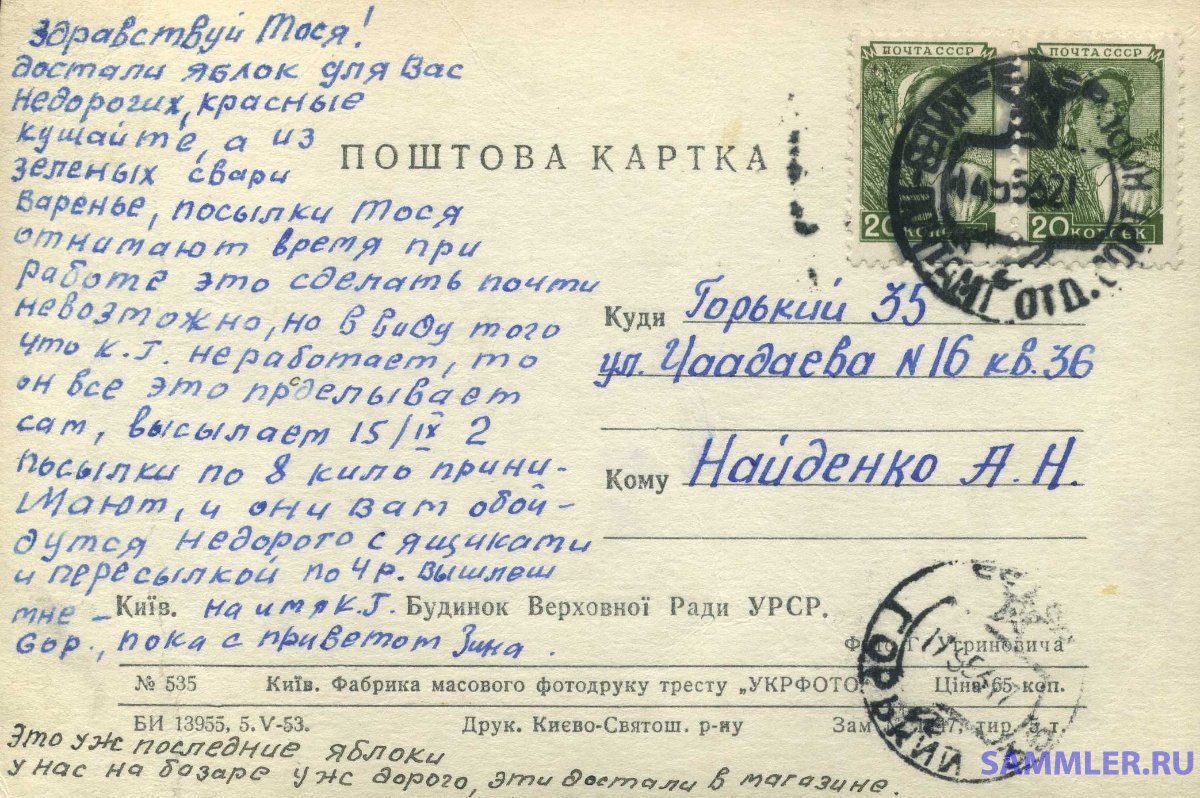 Здравствуй Тося!
достали яблок для Вас
недорогих, красные
кушайте, а из
зеленых свари
варенье, посылки Тося
отнимают время при
работе это сделать почти
невозможно, но в виду того
что К.Г. неработает, то
он все это проделывает
сам, высылает 15/IX 2
посылки по 8 кило прини-
мают, и они Вам обой-
дутся недорого с ящиками
и пересылкой по 4 р. вышлеш
мне – на имя К.Г.
бор., пока с приветом Зина.
Это уж последние яблоки
у нас на базаре уж дорого, эти достали в магазине.
ПОШТОВА КАРТКА
ПОЧТА СССР
ПОЧТА СССР
20 КОПЕЕК
20 КОПЕЕК
КИЕВ
ОТД.
Куди Горький 35
ул. Чаадаева N 16 кв. 36
Кому Найденко А. Н.
Київ. Будинок Верховної Ради УРСР.
Фото Г. Угриновича
№ 535 Київ. Фабрика масового фотодруку тресту „УКРФОТО“ Ціна 65 коп.
БИ 13955, 5.V-53. Друк. Києво-Святош. р-ну Зам. тир. з.т.
ГОРЬКИЙ
SAMMLER.RU